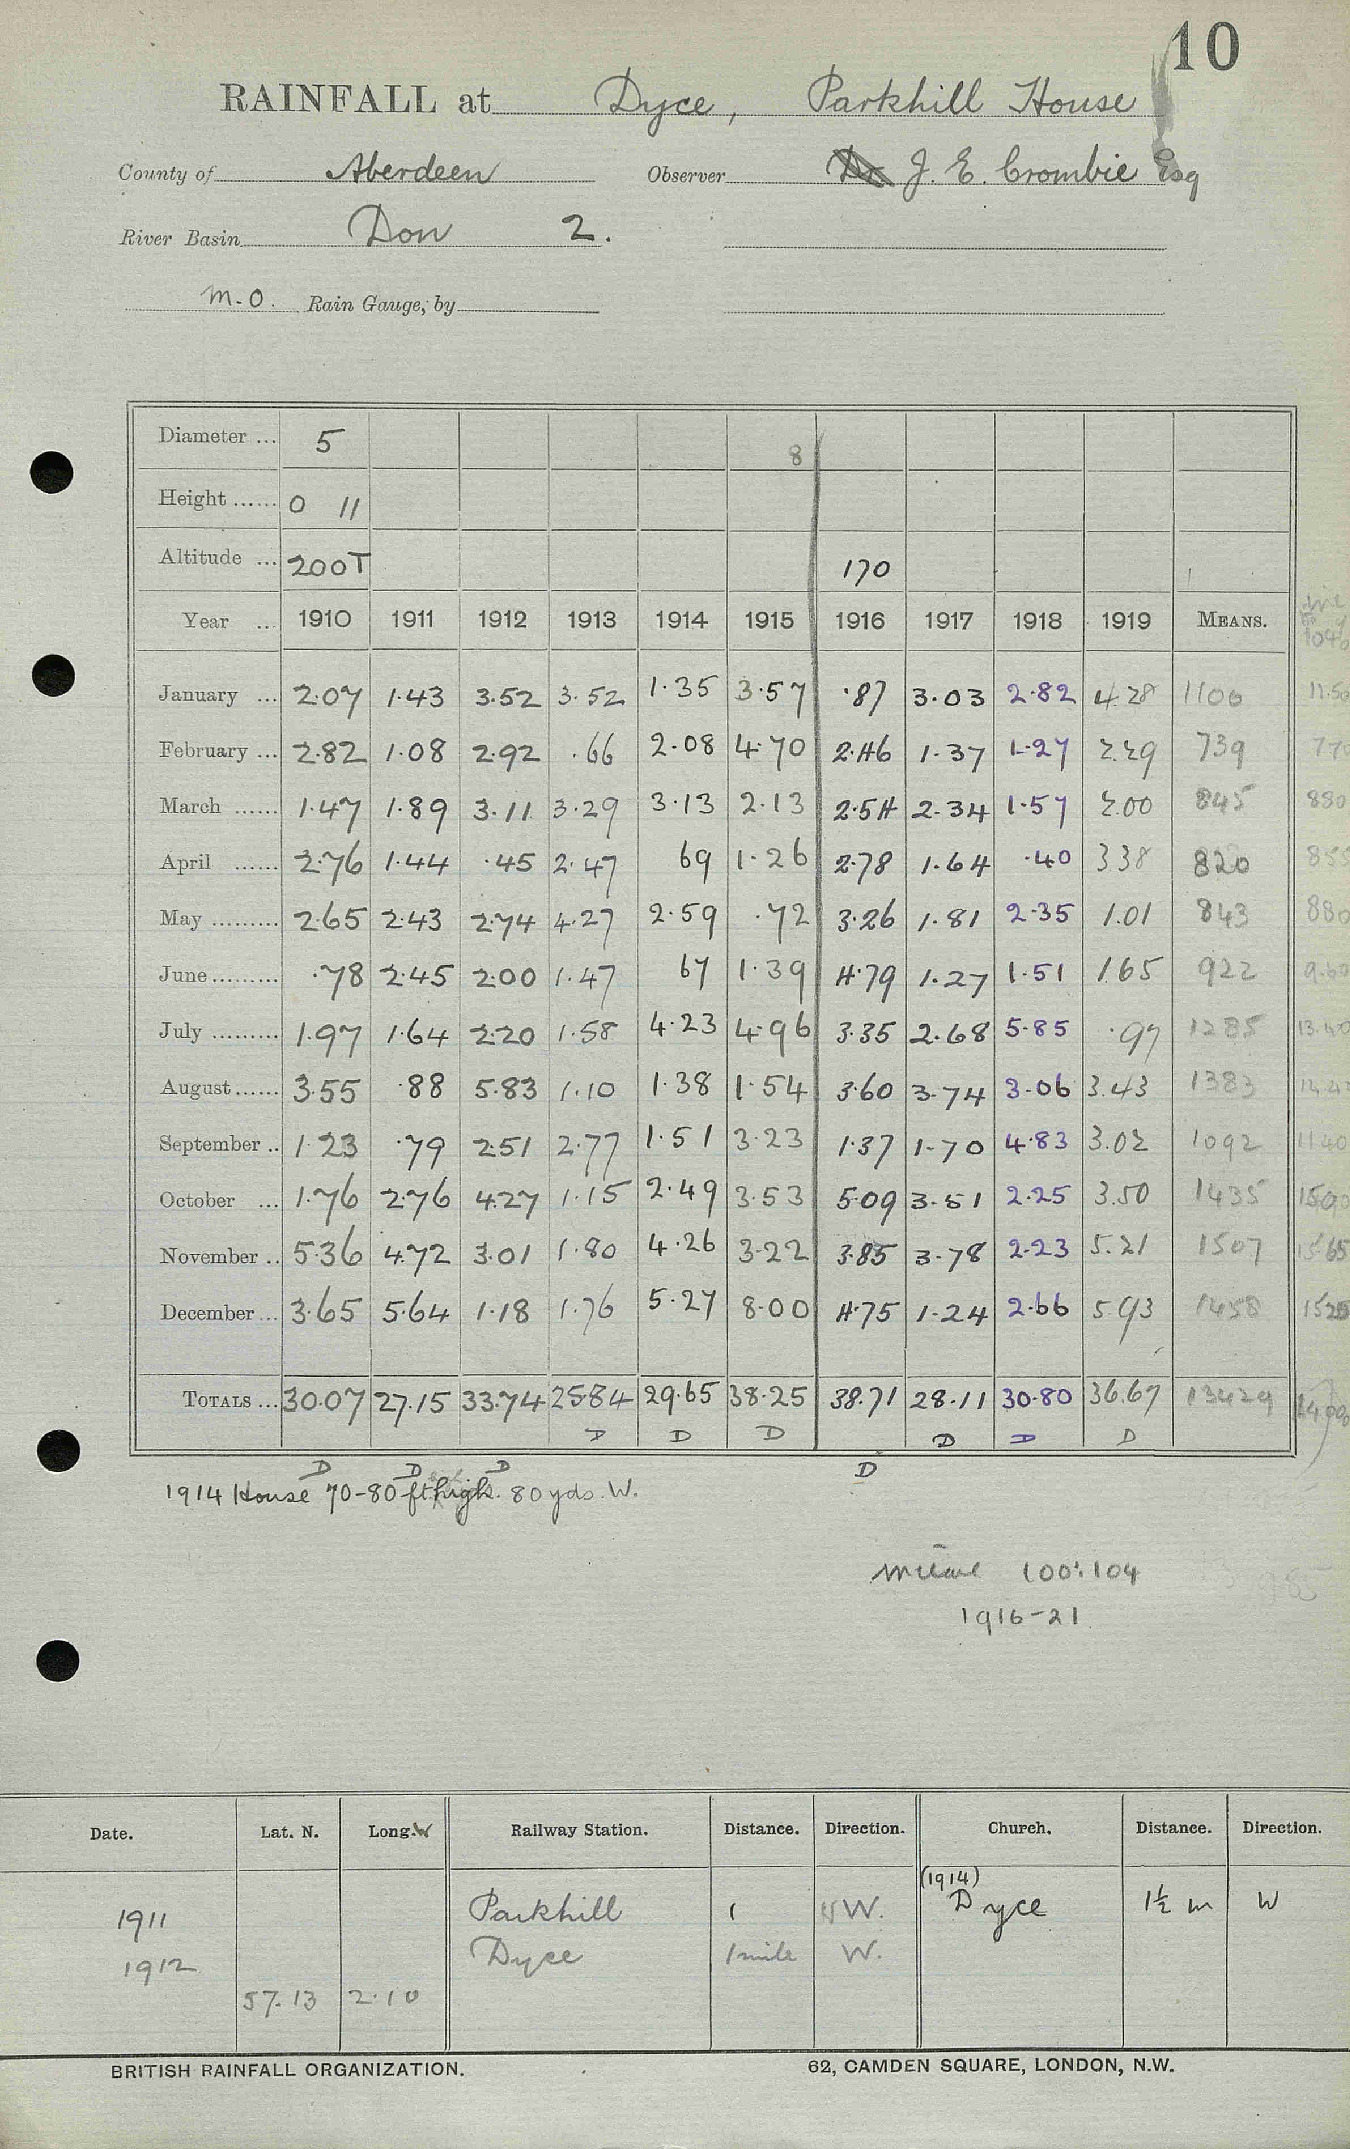 10
RAINFALL at Dyce, Parkhill House
County of Aberdeen Observer J. E. Crombie Esq
River Basin Don 2.
M.O. Rain Gauge, by
Diameter ... 5 8
Height ...... 0 11
Altitude ... 200T 170
Year ... 1910 1911 1912 1913 1914 1915 1916 1917 1918 1919 MEANS.
January ... 2.07 1.43 3.52 3.52 1.35 3.57 .87 3.03 2.82 4.28 1100 11.50
February ... 2.82 1.08 2.92 .66 2.08 4.70 2.46 1.37 1.27 2.29 739
March ...... 1.47 1.89 3.11 3.29 3.13 2.13 2.54 2.34 1.57 2.00 845 880
April ...... 2.76 1.44 .45 2.47 69 1.26 2.78 1.64 .40 3.38 820 855
May ......... 2.65 2.43 2.74 4.27 2.59 .72 3.26 1.81 2.35 1.01 843 880
June ......... .78 2.45 2.00 1.47 67 1.39 4.79 1.27 1.51 1.65 922 9.60
July ......... 1.97 1.64 2.20 1.58 4.23 4.96 3.35 2.68 5.85 .97 1285 13.40
August ...... 3.55 .88 5.83 1.10 1.38 1.54 3.60 3.74 3.06 3.43 1383
September .. 1.23 .79 2.51 2.77 1.51 3.23 1.37 1.70 4.83 3.02 1092 1140
October ... 1.76 2.76 4.27 1.15 2.49 3.53 5.09 3.51 2.25 3.50 1435 1500
November .. 5.36 4.72 3.01 1.80 4.26 3.22 3.85 3.78 2.23 5.21 1507 1565
December ... 3.65 5.64 1.18 1.76 5.27 8.00 4.75 1.24 2.66 5.93 1458 1525
TOTALS ... 30.07 27.15 33.74 25.84 29.65 38.25 38.71 28.11 30.80 36.67 13429
D D D D D D
D D D D
1914 House 70-80 ft high. 80 yds. W.
100:104
1916-21
Date. Lat. N. Long. W Railway Station. Distance. Direction. Church. Distance. Direction.
1911 Parkhill 1 W. (1914) Dyce 1½ m W
1912 Dyce 1 mile W.
57.13 2.10
BRITISH RAINFALL ORGANIZATION. 62, CAMDEN SQUARE, LONDON, N.W.